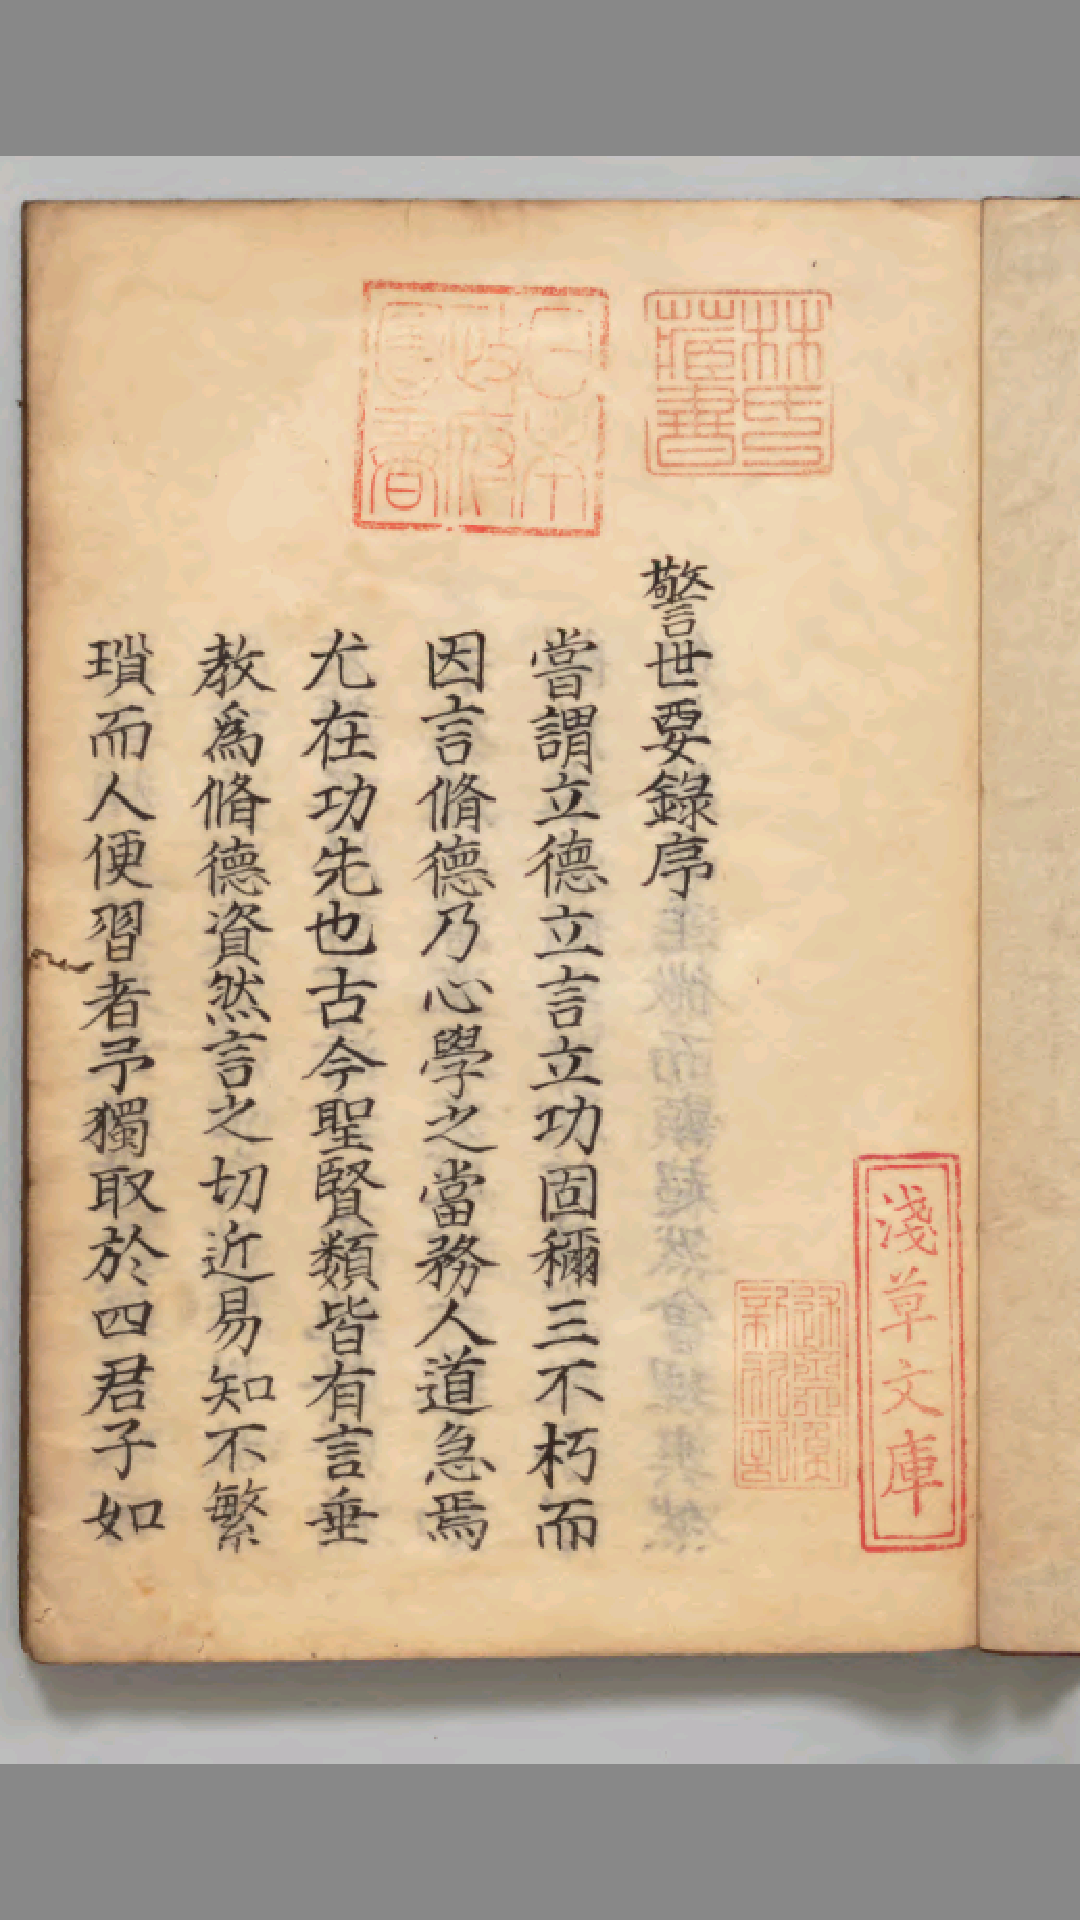 林氏
藏書
日本
政府
圖書
淺草文庫
警世要錄序
嘗謂立德立言立功固稱三不朽而
因言脩德乃心學之當務人道急焉
尤在功先也古今聖賢類皆有言垂
教爲脩德資然言之切近易知不繁
瑣而人便習者予獨取於四君子如